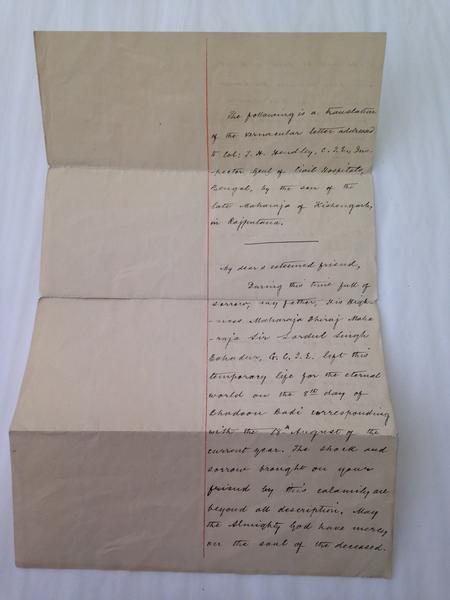 The following is a translation
of the vernacular letter addressed
to Col: T. H. Hendley, C. I. E., Ins-
pector Genl of Civil Hospitals,
Bengal, by the son of the
late Maharaja of Kishengarh,
in Rajputana.
My dear & esteemed friend,
During this time full of
sorrow, my father, His High-
-ness Maharaja Dhiraj Maha-
-raja Sir Sardul Singh
Bahadur, G. C. I. E. left this
temporary life for the eternal
world on the 8th day of
Bhadoon Badi corresponding
with the August of the
current year. The shock and
sorrow brought on your
friend by this calamity are
beyond all description. May
the Almighty God have mercy
on the soul of the deceased.